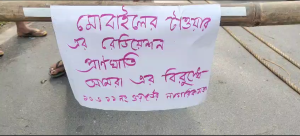 মোবাইলের টাওয়ার
এর রেডিয়েশন
প্রাণঘাতি
আমরা এর বিরুদ্ধে